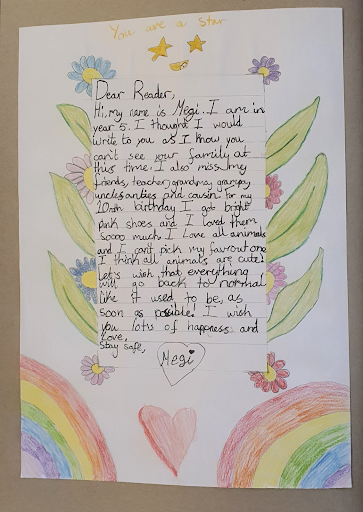 You are a star
Dear Reader,
Hi, my name is Megi. I am in
year 5. I thought I would
write to you as I know you
can't see your family at
this time. I also miss my
friends, teacher, grandma, grampy,
uncles, anties and cousin. for my
10nth birthday I got bright
pink shoes and I loved them
sooo much. I love all animals
and I can't pick my favrout one
I think all animals are cute!
Let's wish that everything
will go back to normal
like it used to be, as
soon as possible! I wish
you lots of happness and
love,
Stay safe,
Megi